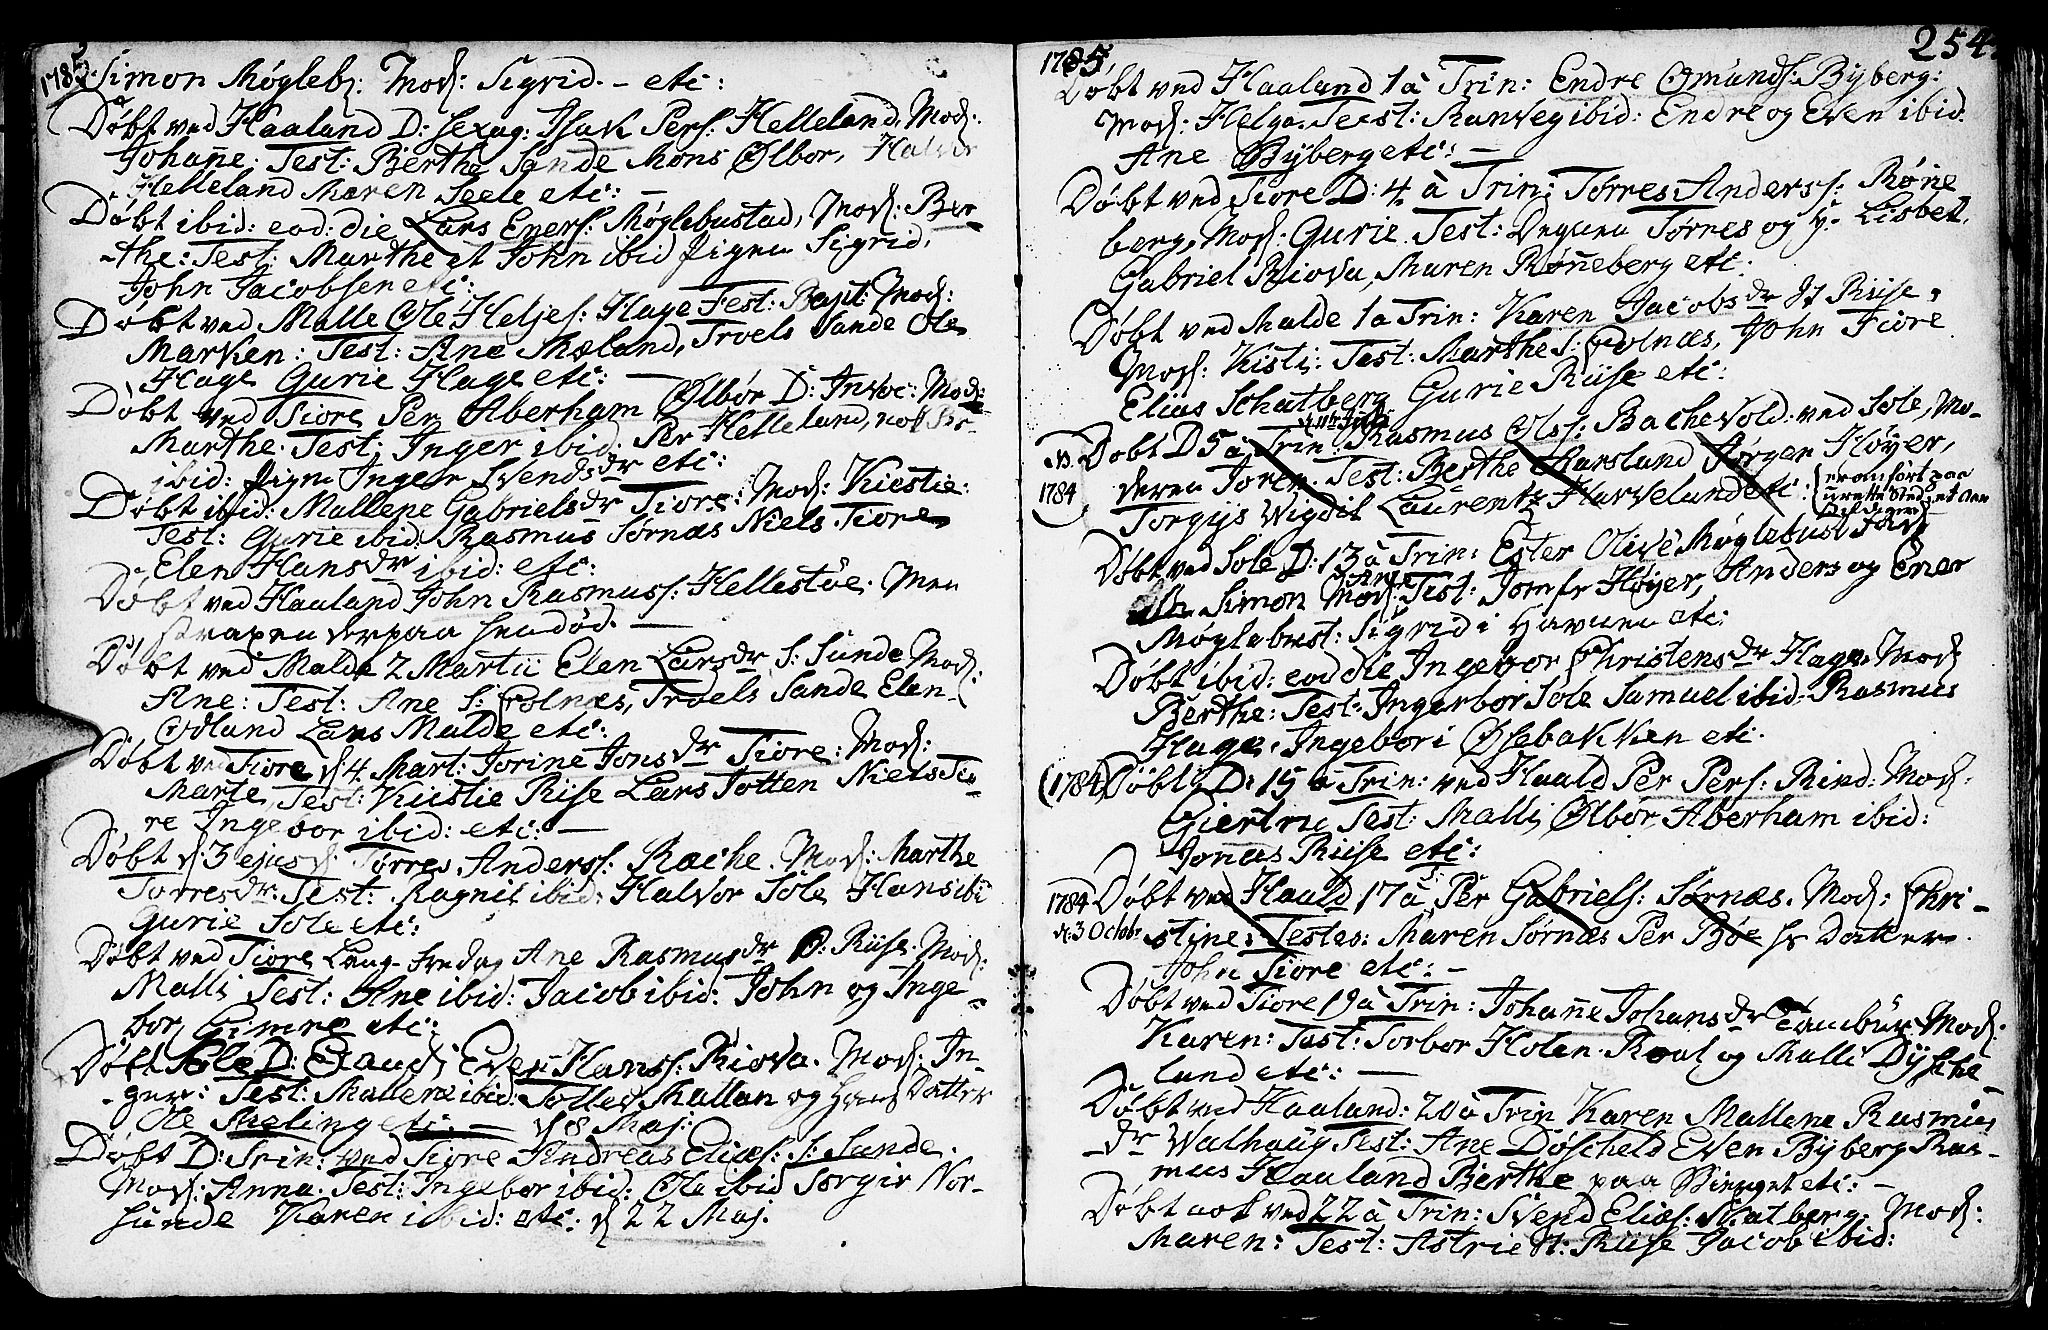 1785.
Simon Møgleb: Mod: Sigrid. - etc:
Døbt ved Haaland D: sexag: Isak Pers: Helleland, Mod:
Johañe: Test: Berthe Sande Mons Ølbor, Halvor
Helleland Maren Seele etc: —
Døbt ibid: eod: die Lars Eners: Møglebustad, Mod: Ber-
the: Test: Marthe et John ibid Pigen Sigrid,
John Jacobsen etc:
Døbt ved Malle Ole Heljes: Hage Test: Bapt: Mod:
Marken: Test: Ane Meland, Troels Sande Ole
Hage Gurie Hage etc: —
Døbt ved Tiore Per Aberham Ølbør D: Invoc: Mod:
Marthe. Test: Inger ibid. Per Helleland, nok
ibid: Pigen Inger Svendsdr etc:
Døbt ibid: Mallene Gabrielsdr Tiore: Mod: Kiestie:
Test: Gurie ibid: Rasmus Sørnæs Niels Tiore
Elen Hansdr ibid: etc:
Døbt ved Haaland John Rasmuss: Hellestøe. Men
straxen derpaa hendød. —
Døbt ved Malde 2 Martii Elen Larsdr S: Sunde Mod:
Ane: Test: Ane S: Colnæs, Troels Sande Elen
Odland Lars Malde etc:
Døbt ved Tiore d 4 Mart: Jorine Jonsdr Tiore: Mod:
Marte, Test: Kiistie Rise Lars Totten Niels Tio-
re Ingebor ibid: etc: —
Døbt d 3 ejusd: Tørres Anderss: Rache. Mod: Marthe
Torresdr. Test: Ragnil ibid: Halvor Sole Hans ibi
Gurie Sole etc:
Døbt ved Tiore Lang-fredag Ane Rasmusdr Riise. Mod:
Malli Test: Ane ibid: Jacob ibid: John og Inge-
bor Gimre etc:
Døbt Sole D: Even Hanss: Riova. Mod: In-
ger: Test: Mallene ibid: Tollev Mallan og hans Datter
Ole Meling etc: — d 8 Maj:
Døbt D: Trin: ved Tiore Andreas Eliæs: S: Sunde.
Mod: Anna. Test: Ingebor ibid: Ole ibid Torgir Nor-
sunde Karen ibid: etc: d 22 Maj.
1785, 254.
Døbt ved Haaland 1 à Trin: Endre Omunds: Byberg:
Mod: Helga. Test: Ranveg ibid: Endre og Even ibid.
Ane Byberg etc: —
Døbt ved Tiore D: 4 à Trin: Tørres Anderss: Røñe
berg, Mod: Gurie. Test: Degnen Tørnes og Lisbet,
Gabriel Riova, Maren Røñeberg etc:
Døbt ved Malde 1 a Trin: Karen Jacobsdr Riise,
Mod: Kisti: Test: Marthe S: Colnæs, John Tiore
Elias Schatberg Gurie Riise etc:
NB. Døbt D 5 à Trin: Rasmus Ols: Bachevold ved Sole, Mo-
1784 deren Joren. Test: Berthe Aarsland Jørgen Höÿer,
Torgys Wigdil Laurentz Harveland etc: (er anført paa
urette Sted, et Aar
tidligere)
Døbt ved Sole D: 13 à Trin: Ester Olive Møglebust
Simon Mod: Test: Jomfr Höÿer, Anders og Ener
Møglebust: Sigrid i Havnen etc:
Døbt ibid: eod die Ingebor Christensdr Hage. Mod
Berthe: Test: Ingerbor Sole Samuel ibid: Rasmus
Hage. Ingebor i Øsebakken etc.
(1784) Døbt D: 15 à Trin: ved Haald Per Pers: Rind: Mod:
Giertru Test: Malli Ølbør Aberham ibid:
Jonas Riise etc:
1784 Døbt ved Haald 17 à Per Gabriels: Sørnæs. Mod: Chri-
d. 3 Octobr stine: Testes: Maren Sørnæs Per Bøe hs Datter
John Tiore etc: —
Døbt ved Tiore 19 à Trin: Johañe Johansdr Tambur. Mod:
Karen: Test: Torbor Holen. Roal og Malli Dysche
lund etc: —
Døbt ved Haaland: 20 à Trin Karen Mallene Rasmus
dr Walhaug Test: Ane Døscheld Even Byberg Ras-
mus Haaland Berthe paa Bierget etc: —
Døbt nok ved 22 à Trin: Svend Eliæs: Skatberg. Mod:
Maren: Test: Astrie Riise Jacob ibid: